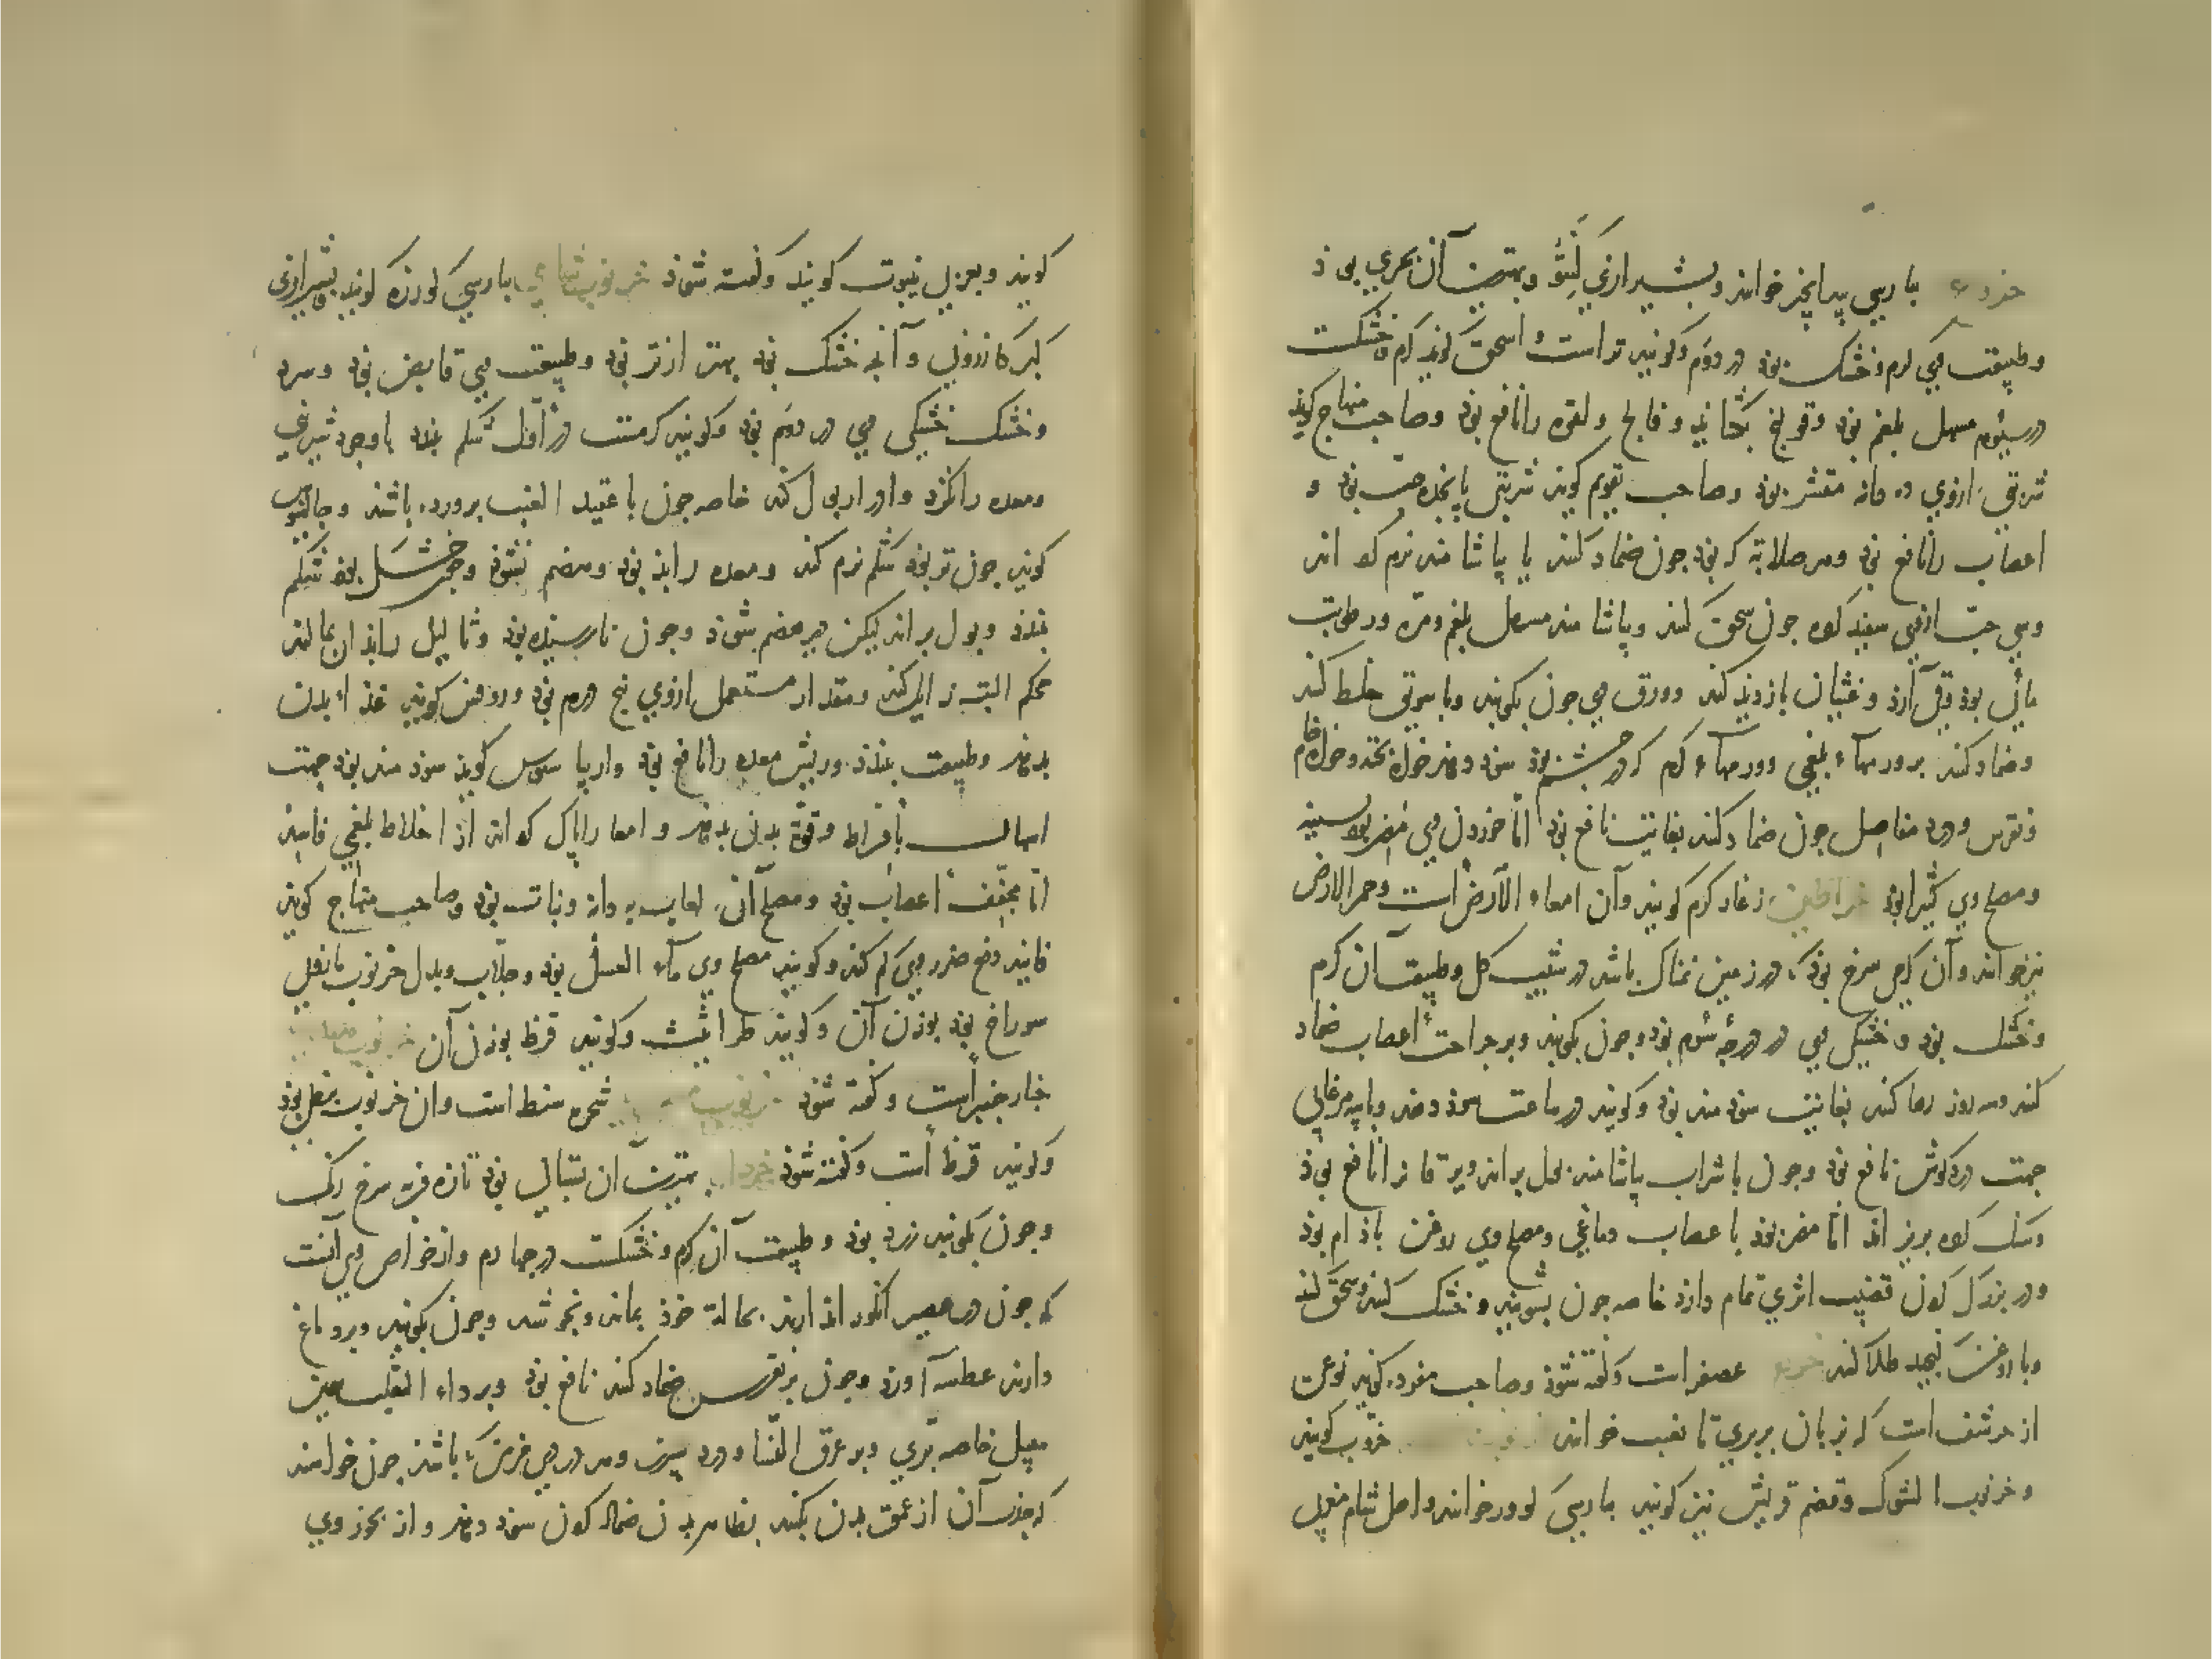 خروع بارسی بیدانجیر خوانند و بشیرازی کَنَتُو و بهترین آن بحری بوذ
و طبیعت وی کرم و خشک بوذ در دوم و کویند تر است و اسحق کوید کرم و خشکست
در سیوم مسهل بلغم بوذ و قولنج بکشاید و فالج و لقوه را نافع بوذ و صاحب منهاج کوید
شربتی ازوی ده دانه مقشر بوذ و صاحب تقویم کوید شربتی پانجده حب بوذ و
اعصاب را نافع بوذ و هر صلابة که بوذ جون ضماد کنند یا بیاشامند نرم کرداند
وسی حب ازوی سفید کرده جون سحق کنند و بیاشامند مسهل بلغم و مره و رطوبت
مائی بوذ و قی آرذ و غثیان بازدید کند و ورق وی جون بکوبند و با سویق خلط کنند
و ضماد کنند بر ورمهاء بلغمی و ورمهاء کرم که در جشم بوذ سوذ دهد خواه پخته و خواه خام
و نقرس و درد مفاصل جون ضماد کنند بغایت نافع بوذ اما خوردن وی مضر بود بسینه
و مصلح وی کثیرا بوذ خراطین زغار کرم کویند و آن امعاء الارض است و حمر الارض
نیز خوانند و آن کرمی سرخ بوذ که در زمین نمناک باشد در شیب کل و طبیعت آن کرم
و خشک بوذ و خشکی وی در درجهٔ سوم بوذ و جون بکوبند و بر جراحت اعصاب ضماد
کنند و سه روز رها کنند بغایت سوذ مند بوذ و کویند در ساعت سوذ دهد و با پیه مرغابی
جهت درد کوش نافع بوذ و جون با شراب بیاشامند بول براند و یرقانرا نافع بوذ
و سنک کرده بریزاند اما مضر بوذ با عصاب دماغی و مصلح وی روغن باذام بوذ
و در بزرک کردن قضیب اثری تمام دارد خاصه جون بشویند و خشک کنند و سحق کنند
و با روغن کنجد طلا کنند خریع عصفر است و کفته شوذ و صاحب مفرده کوید نوعیست
از حرشف است که بزبان بربری تا نغیب خوانند خرنوب خروب کویند
و خرنوب الشوک و قضم قریش نیز کویند بارسی کورر خوانند و اهل شام
کویند و بعربی ینبوت کویند و کفته شوذ خرنوب شامی بارسی کورزه کویند بشیرازی
کبر کازرونی و آنجه خشک بوذ بهتر از تر بوذ و طبیعت وی قابض بوذ و سرد
و خشک خشکی وی در دوم بوذ و کویند کرمست در اول شکم ببندد باوجود شیرینی
و معده را نکزد و ادرار بول کند خاصه جون با عقید العنب برورده باشند و جالینوس
کوید جون تر بوذ شکم نرم کند و معده را بد بوذ و هضم نشوذ و جون خشک بوذ شکم
ببندد و بول براند لیکن دیر هضم شوذ و جون نارسیده بوذ و ثآلیل را بدان بمالند
محکم البته زایل کند و مقدار مستعمل ازوی پنج درم بوذ و روفس کوید غذاء بدن
بدهد و طبیعت ببندد و ریش معده را نافع بوذ و اریباسوس کوید سوذ مند بوذ جهت
اسهال بافراط و قوة بدن بدهد و امعا را پاک کرداند از اخلاط بلغمی فاسد
اما مجفف اعصاب بوذ و مصلح آن لعاب به دانه و نبات بوذ و صاحب منهاج کوید
فانید دفع ضرر وی کم کند و کویند مصلح وی ماء العسل بوذ و جلاب و بدل خرنوب مابقی
سوراخ بوذ بوزن آن و کویند طراثیث و کویند قرظ بوزن آن خرنوب
خیار جنبر است و کفته شوذ خرنوب شجره سنط است و آن خرنوب
و کویند قرظ است و کفته شوذ خردل بهترین آن بستانی بوذ تازه فربه سرخ رنک
و جون بکوبند زرد بوذ و طبیعت آن کرم و خشکست در جهارم و از خواص وی آنست
که جون در عصیر انکور اندازند بحالة خوذ بماند و نجوشد و جون بکوبند و بر دماغ
دارند عطسه آورذ و جون بر نقرس ضماد کنند نافع بوذ و بر داء الثعلب همین
سبیل خاصه بری و بر عرق النسا و درد سپرز و هر دردی مزمن که باشذ جون خواهند
که جذب آن از عمق بدن بکنند بظاهر بدن ضماد کردن سوذ دهد و از بخور وی